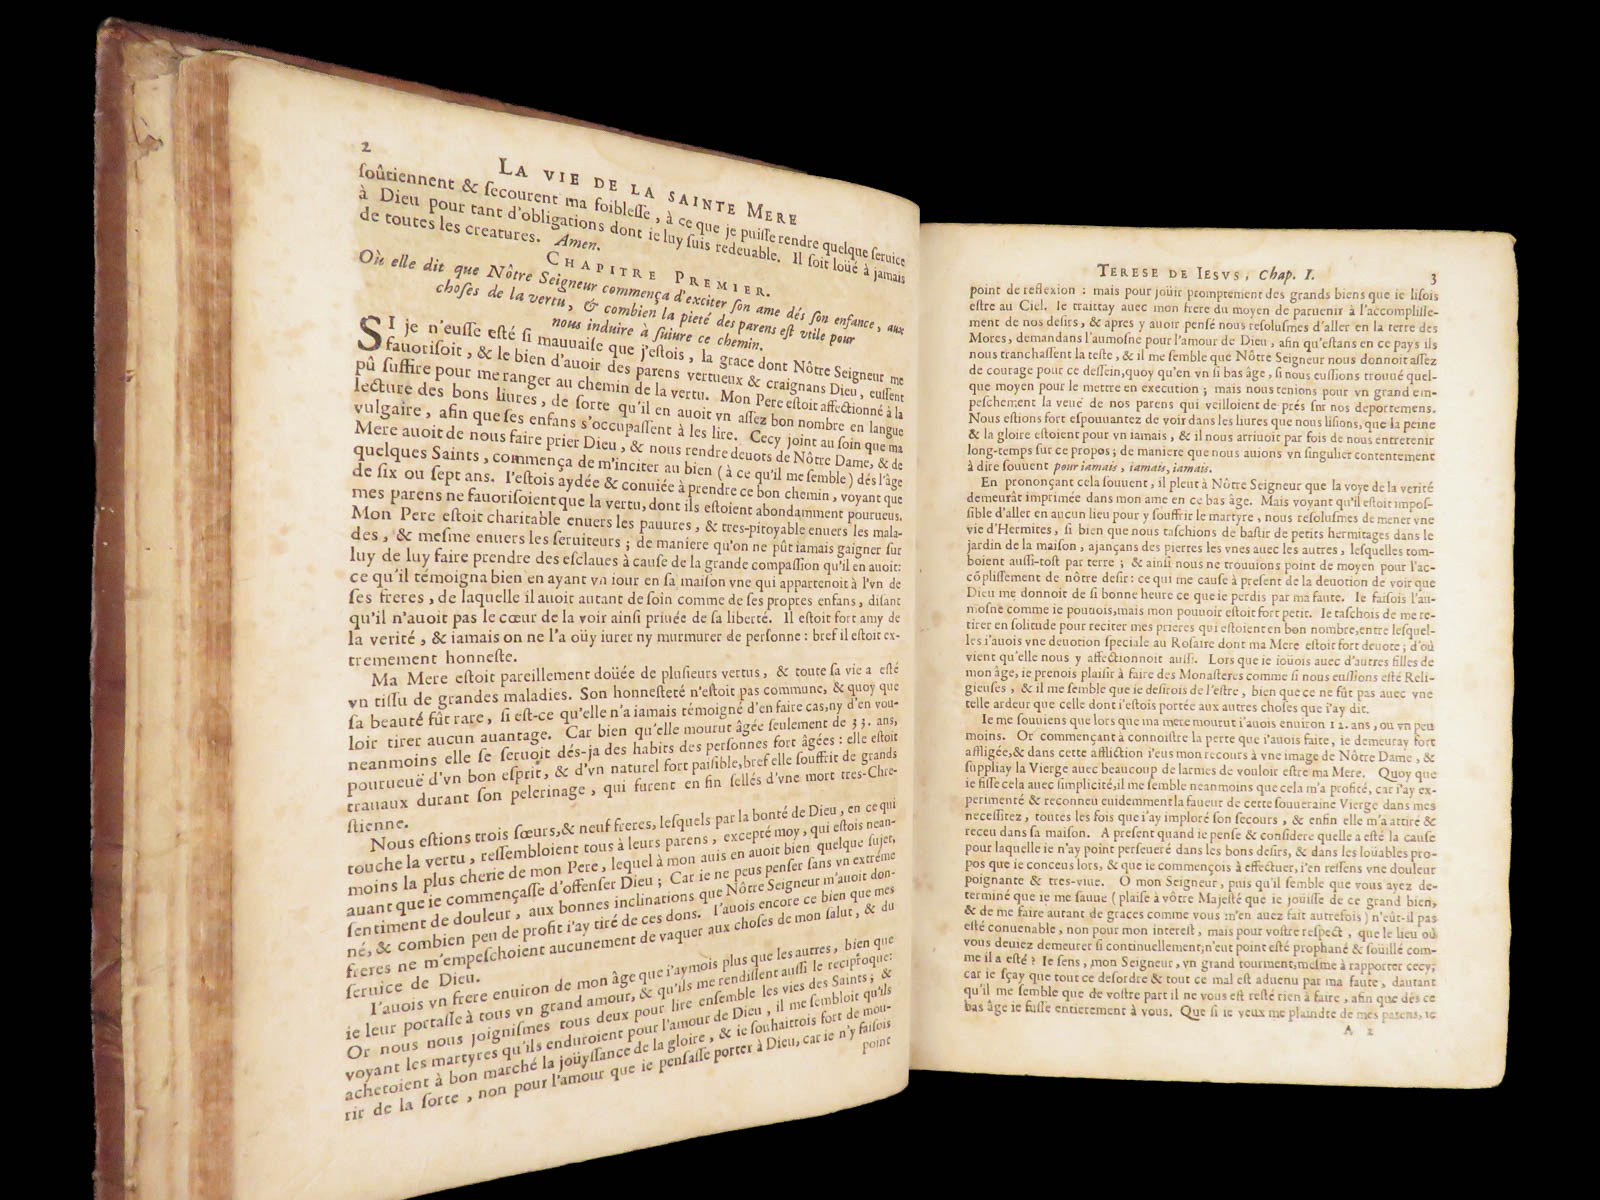 2
LA VIE DE LA SAINTE MERE
ſoûtiennent & ſecourent ma foibleſſe, à ce que je puiſſe rendre quelque ſeruice
à Dieu pour tant d'obligations dont ie luy ſuis redeuable. Il ſoit loüé à jamais
de toutes les creatures. Amen.
CHAPITRE PREMIER.
Où elle dit que Nôtre Seigneur commença d'exciter ſon ame dés ſon enfance, aux
choſes de la vertu, & combien la pieté des parens eſt vtile pour
nous induire à ſuiure ce chemin.
SI je n'euſſe eſté ſi mauuaiſe que j'eſtois, la grace dont Nôtre Seigneur me
fauoriſoit, & le bien d'auoir des parens vertueux & craignans Dieu, euſſent
pû ſuffire pour me ranger au chemin de la vertu. Mon Pere eſtoit affectionné à la
lecture des bons liures, de ſorte qu'il en auoit vn aſſez bon nombre en langue
vulgaire, afin que ſes enfans s'occupaſſent à les lire. Cecy joint au ſoin que ma
Mere auoit de nous faire prier Dieu, & nous rendre deuots de Nôtre Dame, & de
quelques Saints, commença de m'inciter au bien (à ce qu'il me ſemble) dés l'âge
de ſix ou ſept ans. I'eſtois aydée & conuiée à prendre ce bon chemin, voyant que
mes parens ne fauoriſoient que la vertu, dont ils eſtoient abondamment pourueus.
Mon Pere eſtoit charitable enuers les pauures, & tres-pitoyable enuers les mala-
des, & meſme enuers les ſeruiteurs; de maniere qu'on ne pût iamais gaigner ſur
luy de luy faire prendre des eſclaues à cauſe de la grande compaſſion qu'il en auoit:
ce qu'il témoigna bien en ayant vn iour en ſa maiſon vne qui appartenoit à l'vn de
ſes freres, de laquelle il auoit autant de ſoin comme de ſes propres enfans, diſant
qu'il n'auoit pas le cœur de la voir ainſi priuée de ſa liberté. Il eſtoit fort amy de
la verité, & iamais on ne l'a oüy iurer ny murmurer de perſonne: bref il eſtoit ex-
tremement honneſte.
Ma Mere eſtoit pareillement doüée de pluſieurs vertus, & toute ſa vie a eſté
vn tiſſu de grandes maladies. Son honneſteté n'eſtoit pas commune, & quoy que
ſa beauté fût rare, ſi eſt-ce qu'elle n'a iamais témoigné d'en faire cas, ny d'en vou-
loir tirer aucun auantage. Car bien qu'elle mourut âgée ſeulement de 33. ans,
neanmoins elle ſe ſeruoit dés-ja des habits des perſonnes fort âgées: elle eſtoit
pourueuë d'vn bon eſprit, & d'vn naturel fort paiſible, bref elle ſouffrit de grands
trauaux durant ſon pelerinage, qui furent en fin ſellés d'vne mort tres-Chre-
ſtienne.
Nous eſtions trois ſœurs, & neuf freres, leſquels par la bonté de Dieu, en ce qui
touche la vertu, reſſembloient tous à leurs parens, excepté moy, qui eſtois nean-
moins la plus cherie de mon Pere, lequel à mon auis en auoit bien quelque ſujet,
auant que ie commençaſſe d'offenſer Dieu; Car ie ne peus penſer ſans vn extréme
ſentiment de douleur, aux bonnes inclinations que Nôtre Seigneur m'auoit don-
né, & combien peu de profit i'ay tiré de ces dons. I'auois encore ce bien que mes
freres ne m'empeſchoient aucunement de vaquer aux choſes de mon ſalut, & du
ſeruice de Dieu.
I'auois vn frere enuiron de mon âge que i'aymois plus que les autres, bien que
ie leur portaſſe à tous vn grand amour, & qu'ils me rendiſſent auſſi le reciproque:
Or nous nous joigniſmes tous deux pour lire enſemble les vies des Saints; &
voyant les martyres qu'ils enduroient pour l'amour de Dieu, il me ſembloit qu'ils
achetoient à bon marché la joüyſſance de la gloire, & ie ſouhaittois fort de mou-
rir de la ſorte, non pour l'amour que ie penſaſſe porter à Dieu, car ie n'y faiſois
point
TERESE DE IESVS, Chap. I.
3
point de reflexion: mais pour joüir promptement des grands biens que ie liſois
eſtre au Ciel. Ie traittay auec mon frere du moyen de paruenir à l'accompliſſe-
ment de nos deſirs, & apres y auoir penſé nous reſoluſmes d'aller en la terre des
Mores, demandans l'aumoſne pour l'amour de Dieu, afin qu'eſtans en ce pays ils
nous tranchaſſent la teſte, & il me ſemble que Nôtre Seigneur nous donnoit aſſez
de courage pour ce deſſein, quoy qu'en vn ſi bas âge, ſi nous euſſions trouué quel-
que moyen pour le mettre en execution; mais nous tenions pour vn grand em-
peſchement la veuë de nos parens qui veilloient de prés ſur nos deportemens.
Nous eſtions fort eſpouuantez de voir dans les liures que nous liſions, que la peine
& la gloire eſtoient pour vn iamais, & il nous arriuoit par fois de nous entretenir
long-temps ſur ce propos; de maniere que nous auions vn ſingulier contentement
à dire ſouuent pour iamais, iamais, iamais.
En prononçant cela ſouuent, il pleut à Nôtre Seigneur que la voye de la verité
demeurât imprimée dans mon ame en ce bas âge. Mais voyant qu'il eſtoit impoſ-
ſible d'aller en aucun lieu pour y ſouffrir le martyre, nous reſoluſmes de mener vne
vie d'Hermites, ſi bien que nous taſchions de baſtir de petits hermitages dans le
jardin de la maiſon, ajançans des pierres les vnes auec les autres, leſquelles tom-
boient auſſi-toſt par terre; & ainſi nous ne trouuions point de moyen pour l'ac-
cõpliſſement de nôtre deſir: ce qui me cauſe à preſent de la deuotion de voir que
Dieu me donnoit de ſi bonne heure ce que ie perdis par ma faute. Ie faiſois l'au-
moſne comme ie pouuois, mais mon pouuoir eſtoit fort petit. Ie taſchois de me re-
tirer en ſolitude pour reciter mes prieres qui eſtoient en bon nombre, entre leſquel-
les i'auois vne deuotion ſpeciale au Roſaire dont ma Mere eſtoit fort deuote; d'où
vient qu'elle nous y affectionnoit auſſi. Lors que ie ioüois auec d'autres filles de
mon âge, ie prenois plaiſir à faire des Monaſteres comme ſi nous euſſions eſté Reli-
gieuſes, & il me ſemble que ie deſirois de l'eſtre, bien que ce ne fût pas auec vne
telle ardeur que celle dont i'eſtois portée aux autres choſes que i'ay dit.
Ie me ſouuiens que lors que ma mere mourut i'auois enuiron 12. ans, ou vn peu
moins. Or commençant à connoiſtre la perte que i'auois faite, ie demeuray fort
affligée, & dans cette affliction i'eus mon recours à vne image de Nôtre Dame, &
ſuppliay la Vierge auec beaucoup de larmes de vouloir eſtre ma Mere. Quoy que
ie fiſſe cela auec ſimplicité, il me ſemble neanmoins que cela m'a profité, car i'ay ex-
perimenté & reconneu euidemment la faueur de cette ſouueraine Vierge dans mes
neceſſitez, toutes les fois que i'ay imploré ſon ſecours, & enfin elle m'a attiré &
receu dans ſa maiſon. A preſent quand ie penſe & conſidere quelle a eſté la cauſe
pour laquelle ie n'ay point perſeueré dans les bons deſirs, & dans les loüables pro-
pos que ie conceus lors, & que ie commençois à effectuer, i'en reſſens vne douleur
poignante & tres-viue. O mon Seigneur, puis qu'il ſemble que vous ayez de-
terminé que ie me ſauue (plaiſe à vôtre Majeſté que ie joüiſſe de ce grand bien,
& de me faire autant de graces comme vous m'en auez fait autrefois) n'eût-il pas
eſté conuenable, non pour mon intereſt, mais pour voſtre reſpect, que le lieu où
vous deuiez demeurer ſi continuellement, n'eut point eſté prophané & ſoüillé com-
me il a eſté? Ie ſens, mon Seigneur, vn grand tourment, meſme à rapporter cecy;
car ie ſçay que tout ce deſordre & tout ce mal eſt aduenu par ma faute, dautant
qu'il me ſemble que de voſtre part il ne vous eſt reſté rien à faire, afin que dés ce
bas âge ie fuſſe entierement à vous. Que ſi ie veux me plaindre de mes parens, ie
A 2